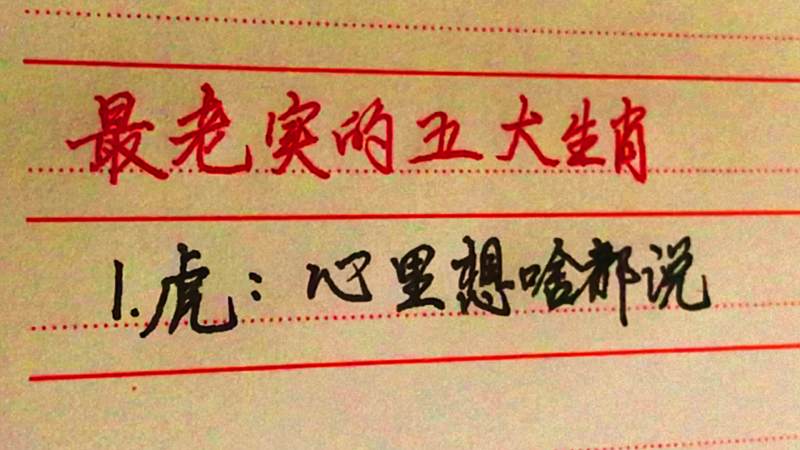 最老实的五大生肖
1.虎：心里想啥都说